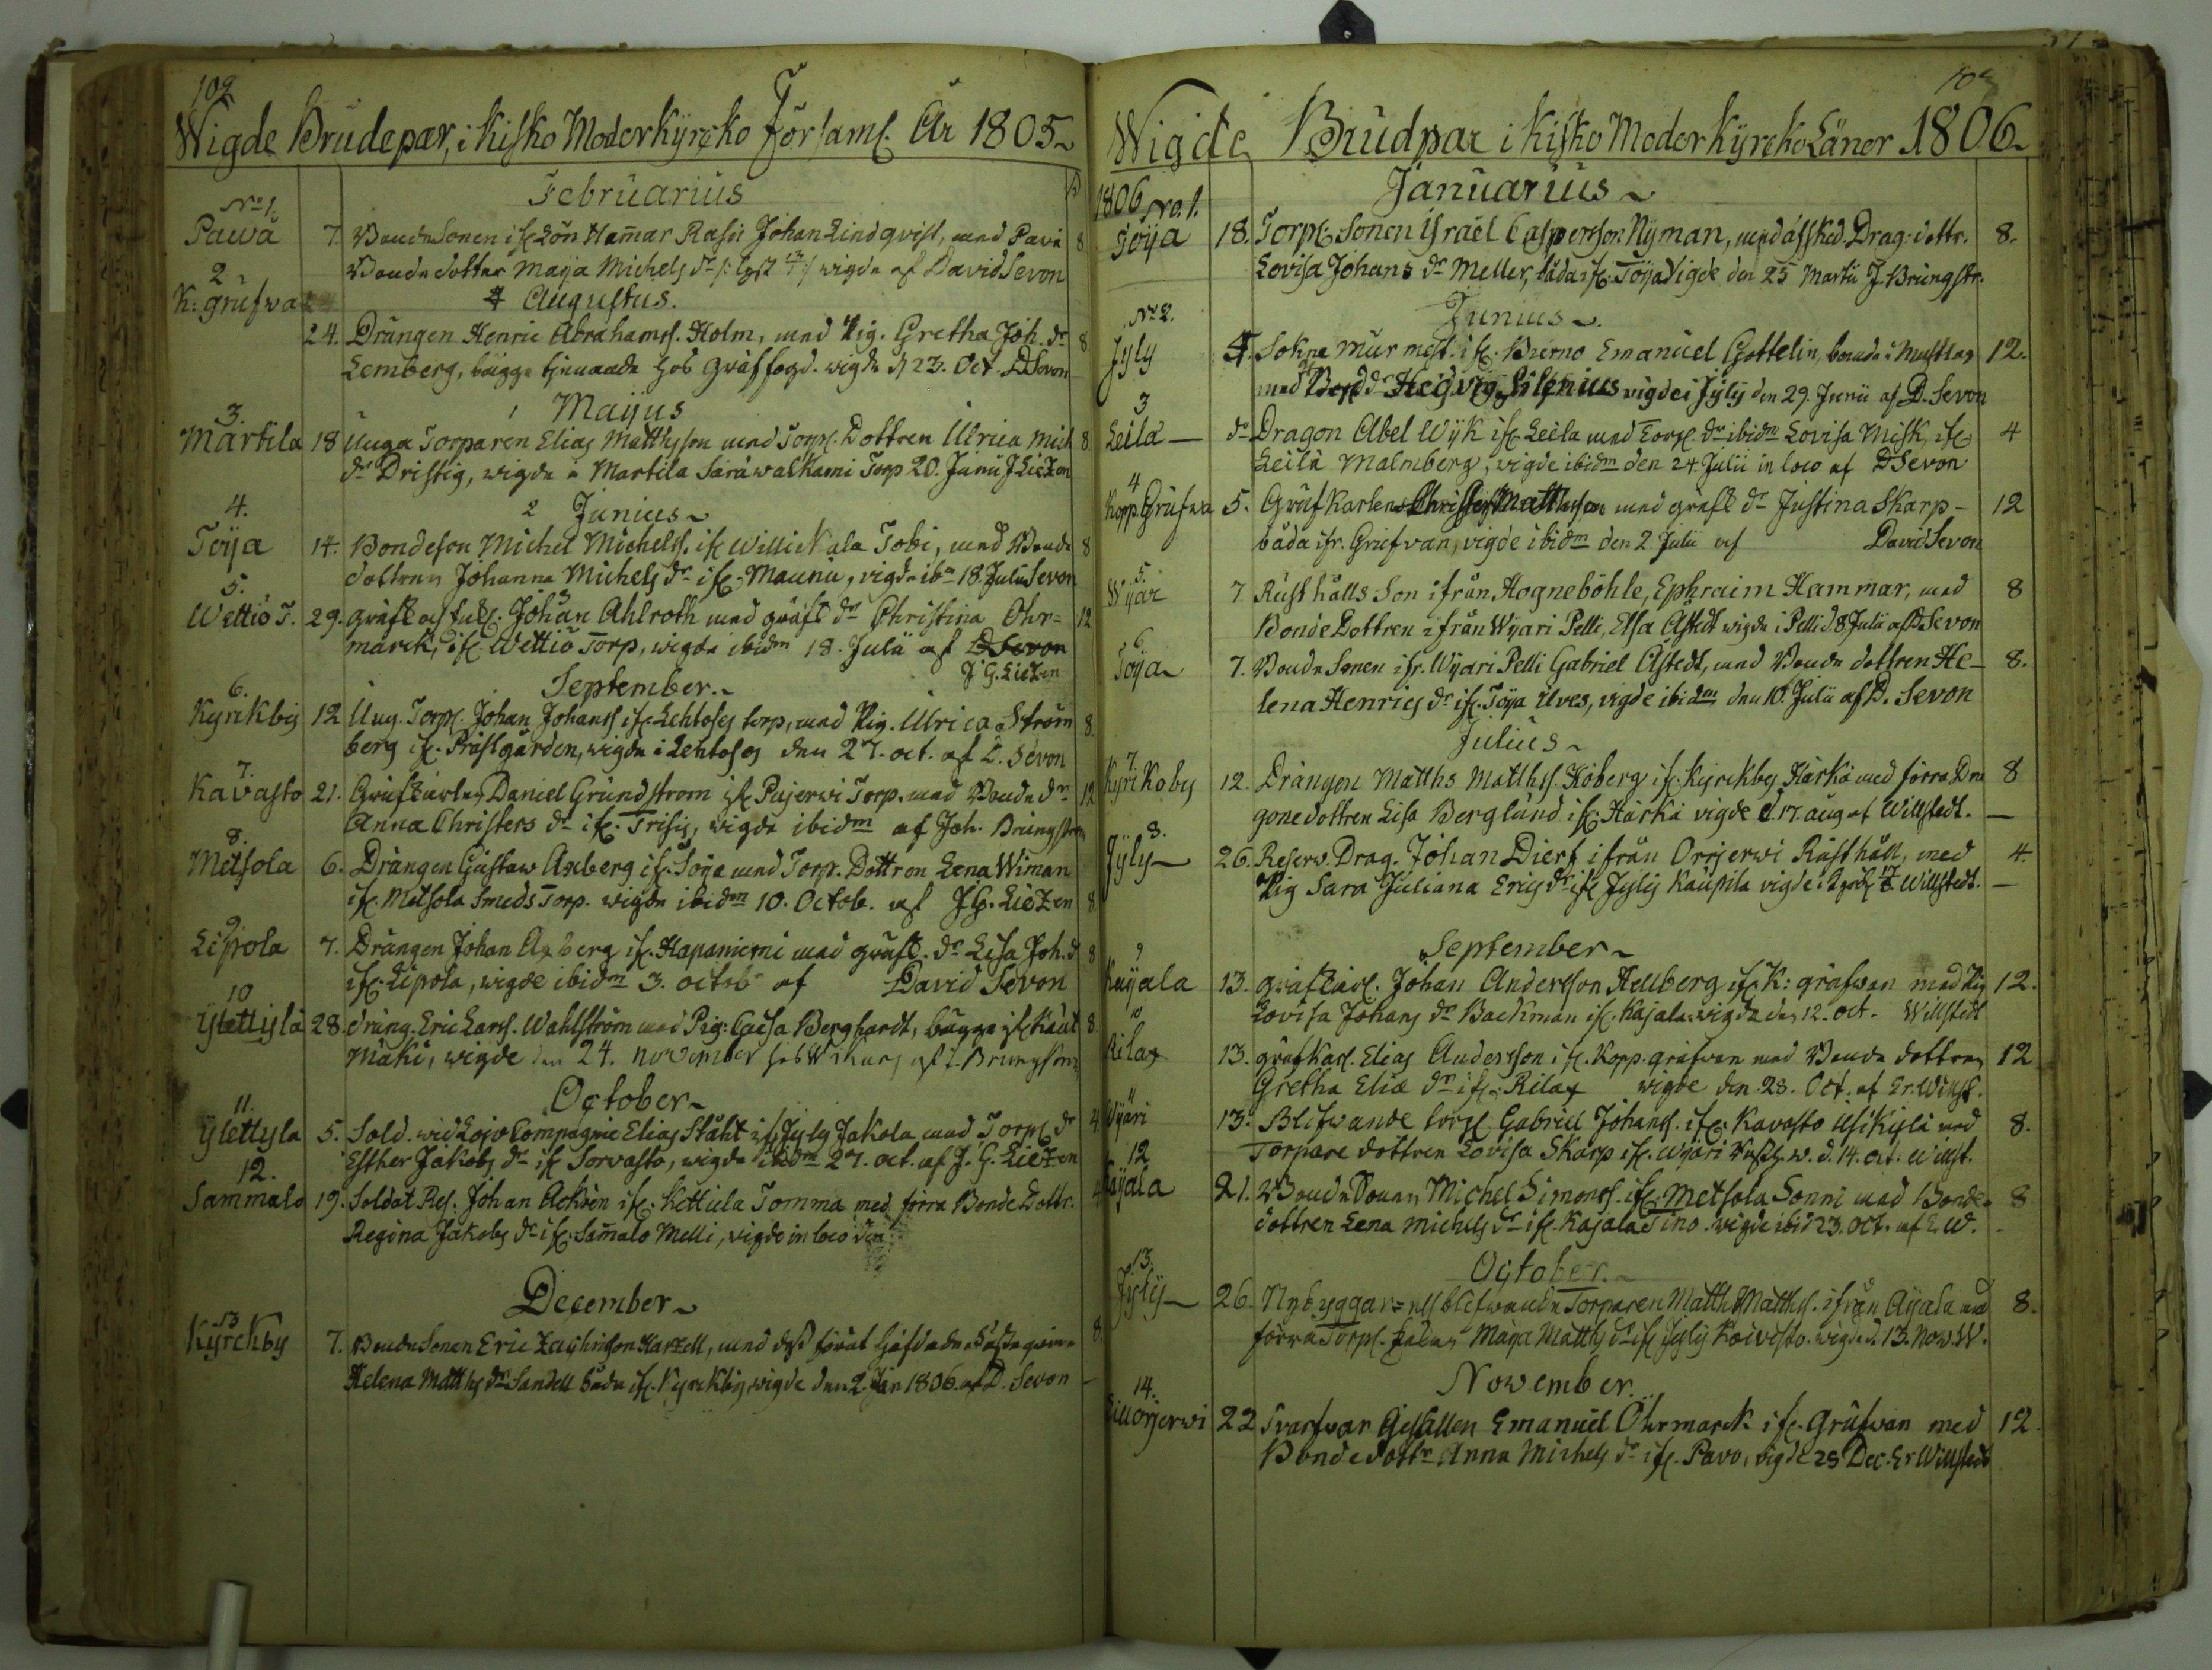 102
Wigde Brudepar, i Kisko Moderkyrcko Församl. År 1805
Februarius
No 1.
Pawä 7. Bonde Sonen ifr. Hammar Rasii Johan Lindqvist, med Pavä 8
Bonde dotter Maija Michels dr wigde af David Sevon
2
K: grufwa
Augustus.
24. Drängen Henric Abrahamss. Holm, med Pig. Gretha Joh. dr 8
Lemberg, bägge tjenande hos wigde d 23. Oct. D Sevon
Maijus
3.
Martila 18 Unga Torparen Elias Matthsson med Torp. Dottren Ulrica Mich 8
dr Dristig, wigde a Martila Saräwalkami Torp 20. Junii J Liezen
4. Junius
Toija 14. Bondeson Michel Michelss. ifr Willickala Tobi, med Bonde 8
dottren Johanna Michels dr ifr. Maunu, vigde ibm 18. Julii Sevon
5.
Wettiö T. 29. Johan Ahlroth med dr Christina Ohr= 12
marck, ifr. Wettiö Torp, wigde ibidm 18. Julii af D Sevon
J G. Liezen
September.
6.
Kyrckby 12 Ung. Torp. Johan Johanss ifr. Lehtoses torp, med Pig. Ulrica Ström 8.
berg ifr. Prästgården, wigde i Lehtoses den 27. oct. af D. Sevon
7.
Kavasto 21. Daniel Grundstrom ifr Pujerwi Torp. med Bonde dr 12
Anna Christers dr ifr. Trisis, wigde ibidm af Joh. Brungström
8.
Metsola 6. Drängen Gustaw Axberg ifr. Toija med Torp. Dottron Lena Wiman
ifr. Metsola Smeds Torp. wigde ibidm 10. Octob. af JG. Liezen 8.
9
Lipola 7. Drängen Johan Axberg ifr. Hapaniemi med dr Lisa Joh. d 8
ifr. Lipola, wigde ibidm 3. octob af David Sevon
10
Ylettylä 28. dräng. Eric Larss. Wahlström med Pig: Caisa Berghardt, bägge ifr Kaut 8.
mäki, wigde den 24. november
October
11.
Ylettyla 5. Sold. wid Lojo Compagnie Elias Ståhl ifr. Jyly Jakola med Torp. dr 4
Esther Jakobs dr ifr Sorvasto, wigde ibidm 27. oct. af J. G. Liezen
12.
Sammalo 19. Soldat Res. Johan Ackrén ifr. Kettula Tomma med förra Bonde Dottr. 4
Regina Jakobs dr ifr. Sam̄alo Melli, vigde in loco den
December
13
Kyrckby 7. Bonde Sonen Eric Zachrisson Karzell, med 8.
Helena Matths dr Sandell båda ifr. Kyrckby, wigde den 2 Jan 1806. af D. Sevon
103
Wigde Brudpar i Kisko Moderkyrcko Läner 1806.
Januarius
1806 No. 1.
Toija 18. Torp. Sonen Israel Caspersson Nyman, med afsked. Drag. dottr. 8.
Lovisa Johans dr Meller, båda ifr. Toija Vigde den 25 Martii J. Brungstr.
Junius
No 2.
Jyly 4. Sokne Mur mest. ifr. Bierno Emanuel Gottelin, boende i Mustlax 12.
med Bond dr Hedvig Silfnius vigde i Jyly den 29. Junii af D. Sevon
3
Leila dr Dragon Abel Wijk ifr. Leila med Torp. dr ibidm Lovisa Misk, ifr 4
Leila Malmberg, vigde ibidm den 24. Julii in loco af D Sevon
4
Kopp. Grufwa 5. Grufkarlen Christer Mattsson med dr Justina Skarp 12
båda ifr. Grufvan, vigde ibidm den 2. Julii af David Sevon
5.
Wijar 7 Rusthålls Son ifrån Hogneböhle, Ephraim Hammar, med 8
Bonde Dottren ifrån Wijari Pelli, Elsa Åstedt vigde i Pelli d. 8 Julii af D Sevon
6
Toija 7. Bonde Sonen ifr. Wijari Pelli Gabriel Åstedt, med Bonde dottren He- 8.
lena Henrics dr ifr. Toija Ulves, vigde ibidm den 10. Julii af D. Sevon
Julius
7.
Kyrckoby 12. Drängen Matths Matthss. Höberg ifr. Kyrckby Härkä med förra Dra 8
gone dottren Lisa Berglund ifr. Härkä vigde d. 17. aug af Willstedt. —
8.
Jyly 26. Reserv. Drag. Johan Dierf ifrån Orrjerwi Rusthåll, med 4.
Pig Sara Juliana Erics dr ifr Jyly Kaupila vigde Willstedt. —
September
9
Kajala 13. Johan Andersson Hellberg ifr K: grufwan med Pig 12.
Lovisa Johans dr Backman ifr. Kajala wigde den 12. oct. Willstedt
10
Rilax 13. grufkarl. Elias Andersson ifr. Kopp. grufwan med Bonde dottren 12
Gretha Eliæ dr ifr. Rilax wigde den 28. Oct. af Er. Willst.
11
Wijari 13. Blifwande torp. Gabriel Johanss. ifr. Kavasto Usikylä med 8.
Torpare dottren Lovisa Skarp ifr. Wijari w. d. 14. oct. Willst.
12
Kajala 21. Bonde Sonen Michel Simonss. ifr. Metsola Sonni med Bonde- 8
dottren Lena Michels dr ifr. Kajala Tino. wigde ibid 23. oct. af E. W. -
October.
13.
Jyly 26. Nybyggar= och blifwande Torparen Matths Matthss. ifrån Aijala med 8.
förra Torp. Maija Matths dr ifr Jyly Koivisto. wigde d. 13. Now. W.
November.
14.
Lillorjerwi 22 Svarfvar Gesällen Emanuel Öhrmarck ifr. Grufwan med 12.
Bonde dottr Anna Michels dr ifr. Pavo, vigde 28 Dec. Er Willstedt